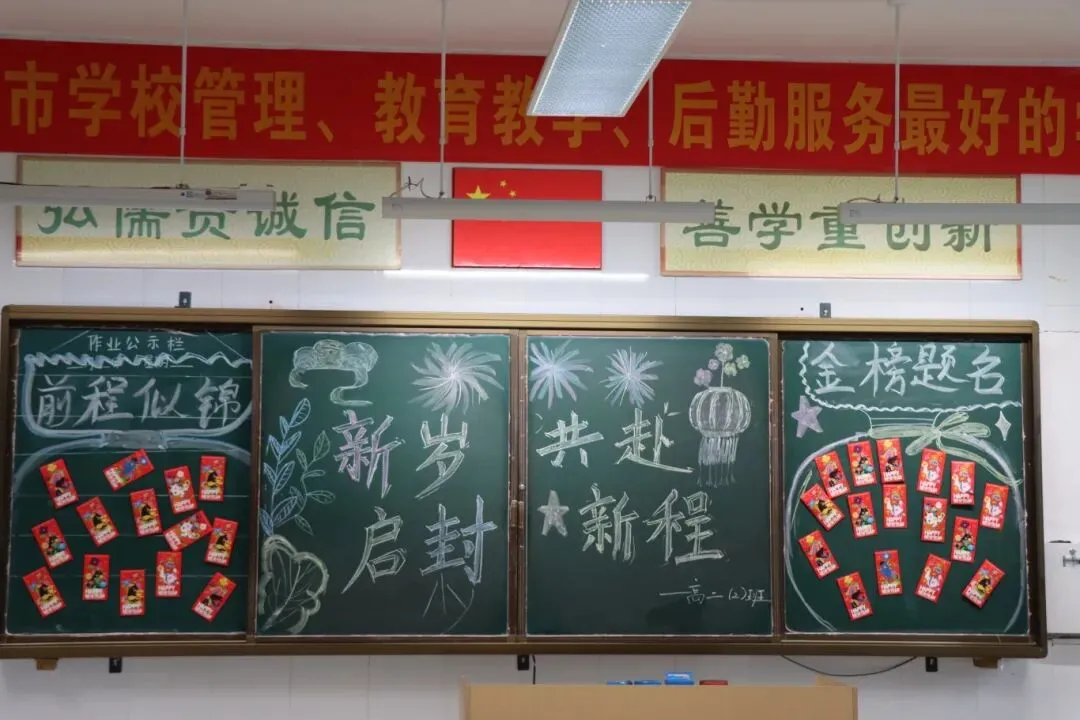 市学校管理、教育教学、后勤服务最好的
弘儒贵诚信
善学重创新
作业公示栏
前程似锦
新岁
启封
共赴
新程
——高二(2)班
金榜题名
HAPPY